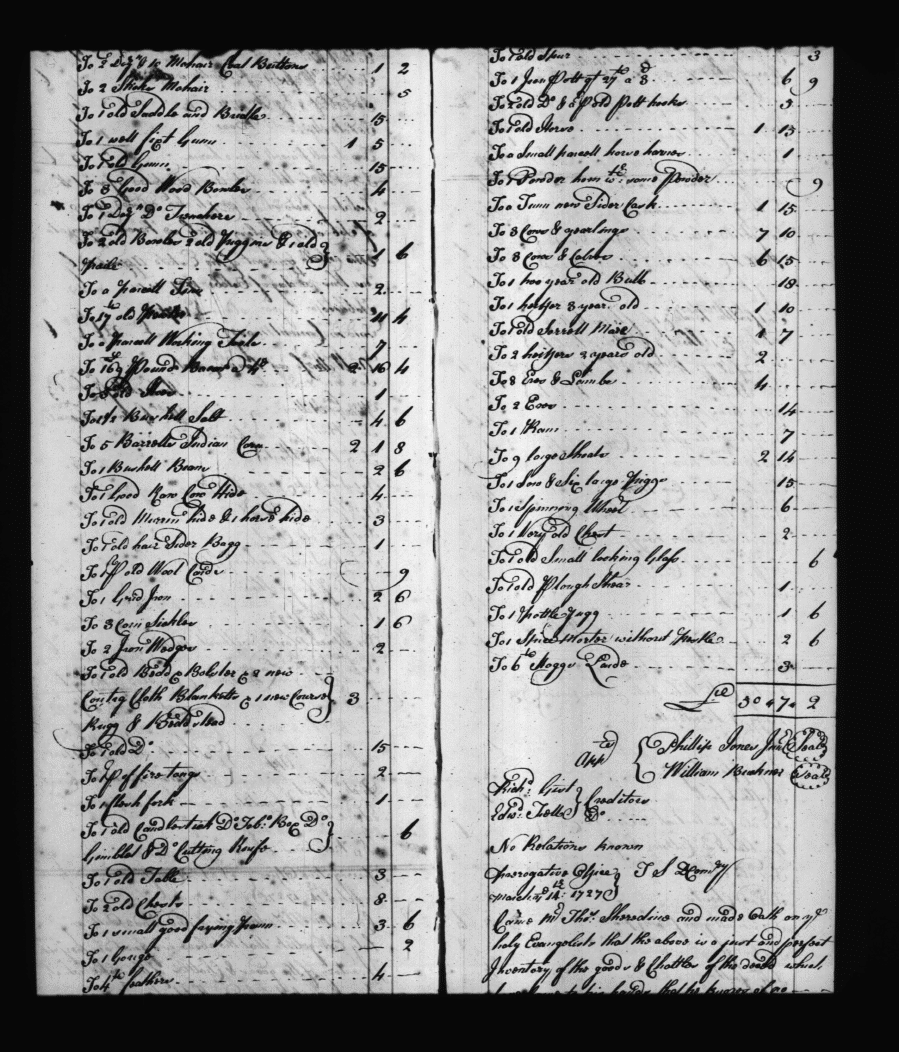 To 2 Dozn & 10 Mohair Coat Buttons 1 2
To 2 Sticks Mohair 5
To 1 old Saddle and Bridle 15
To 1 well fixt Gunn 1 5
To 1 old Gunn 15
To 8 Good Wood Bowles 4
To 1 Dozn Do Trenchers 2
To 2 old Bowles 2 old Piggins & 1 old 1 6
Paile
To a parcell 2
To 17 lb old 4
To a parcell Working Tools 7
To 169 lb Pound Bacon a 4d 2 16 4
To old 1
To 1 1/2 Bushell Salt 4 6
To 5 Barrells Indian Corn 2 1 8
To 1 Bushell Beans 2 6
To 1 Good Raw Cow Hide 4
To 1 old Murrin hide & 1 horse hide 3
To 1 old hair Sider Bagg 1
To 1 Pr old Wool Cards 9
To 1 Grid Iron 2 6
To 3 Corn Sickles 1 6
To 2 Iron Wedges 2
To 1 old Bedd & Bolster & 2 new
Contry Cloth Blanketts & 1 new Course 3
Rugg & Beddstead
To 1 old Do 15
To 1 Pr of fire tongs 2
To 1 flesh fork 1
To 1 old Candlestick Do Tobo Box Do 6
Gimblet & Do Cutting Knife
To 1 old Table 3
To 2 old Chests 8
To 1 small good frying pann 3 6
To 1 Gouge 2
To 4 lb feathers 4
To 1 old Spur 3
To 1 Iron Pott qt 27 lb a 3d 6 9
To 2 old Do & 5 Pr old Pott hooks 5
To 1 old Horse 1 15
To a Small parcell horse harnes 1
To 1 Powder horn wth some Powder 9
To a Tunn new Sider Cask 1 15
To 3 Cows & yearlings 7 10
To 3 Cows & Calves 6 15
To 1 two year old Bull 18
To 1 heifer 3 years old 1 10
To 1 old Sorrell Mare 1 7
To 2 heifers 2 years old 2
To 8 Ews & Lambs 4
To 2 Ews 14
To 1 Ram 7
To 9 large Shoats 2 14
To 1 Sow & Six large Piggs 15
To 1 Spinning Wheel 6
To 1 Very old Chest 2
To 1 old Small looking Glass 6
To 1 old Plough Shear 1
To 1 Pottle Jugg 1 6
To 1 Spice Morter without Pestle 2 6
To 6 lb Hoggs Larde 3
50 47 2
Apprs Phillip Jones Junr Seal
William Buckner Seal
Richd Gist Creditors
Edwd Do
No Relations known
Prerogative Office
March ye 14th 1727
Came Mr Thos Sheredine and made Oath on ye
holy Evangelists that the above is a just and perfect
Inventory of the goods & Chattles of the decd which
hands that he knows of no